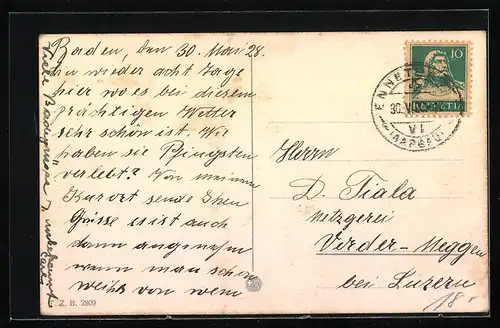 Baden, den 30. Mai 28.
Bin wieder acht Tage
hier wo es bei diesem
prächtigen Wetter
sehr schön ist. Wie
haben sie Pfingsten
verlebt? Von meinem
Kurort sende Ihnen
Grüsse es ist auch
dann angenehm
wenn man schon
weiss von wem
Viele
Z. B. 2809
10
HELVETIA
ENNETB
30. V
VI
(AARGAU)
Herrn
D. Tiala
Metzgerei
Vorder-Meggen
bei Luzern
18